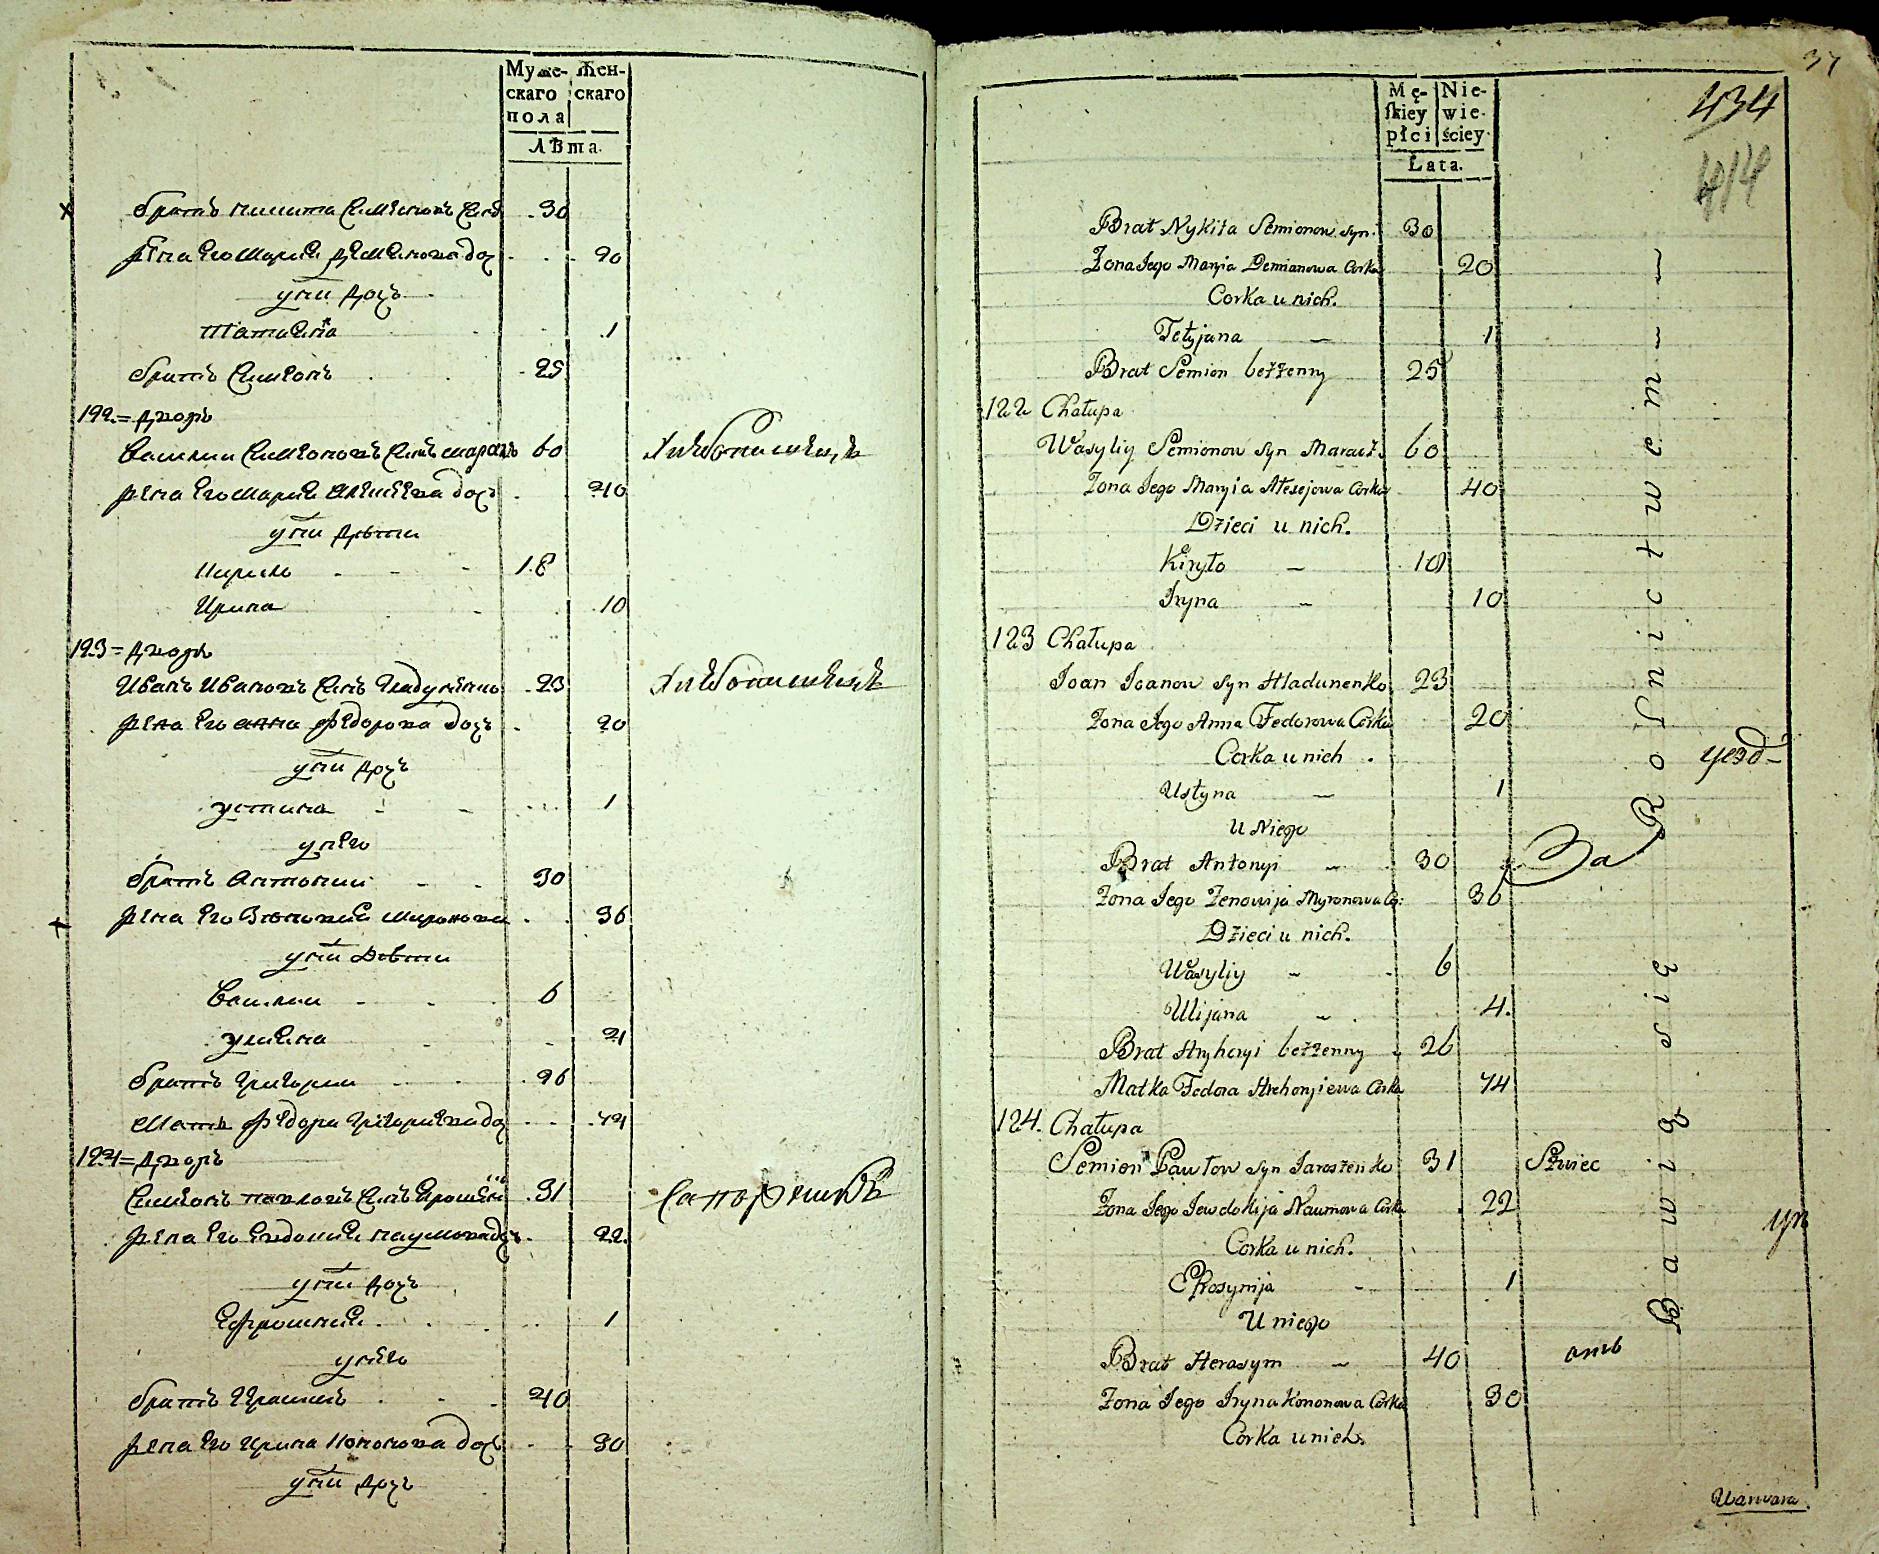 Муже-
скаго
пола
Жен-
скаго
Лѣта.
братъ никита Симионовъ Сынъ 30
жена Его Мария Демянова доч 20
у них Дочь
Татияна 1
братъ Симионъ 25
122 = Дворъ
Василий Симионовъ Сынъ 60 Хлѣбопашецъ
жена Его Мария Алексеева дочь 40
у них Дѣти
Кирило 18
Ирина 10
123 = Дворъ
Иванъ Ивановъ Сынъ Гладуненко 23 Хлѣбопашецъ
жена Его анна Федорова дочь 20
у них Дочь
устина 1
у него
братъ Антоний 30
жена Его Зѣновия Миронова 36
у них Дѣти
Василий 6
улияна 4
братъ Григорий 26
Мать Федора Григориева доч 74
124 = Дворъ
Симионъ павловъ Сынъ 31 Сапожникъ
жена Его Евдокия наумова доч 22.
у них дочь
Ефросиния 1
у него
братъ 40
жена Его Ирина Кононова дочь 30
у них Дочь
37
434
414
Mę-
ſkiey
płci
Nie-
wie-
ściey
Lata.
Brat Nykita Semionow syn. 30
Zona Jego Maryia Demianowa Corka 20
Corka u nich.
Tetyjana 1
Brat Semion bezzenny 25
122 Chałupa
Wasyliy Semionow Syn 60
Zona Jego Maryia Alexejowa Corka 40
Dzieci u nich.
Kiryło 18
Iryna 10
123 Chałupa
Joan Joanow Syn Hladunenko 23
Zona Jego Anna Fedorowa Corka 20
Corka u nich.
Ustyna 1
U Niego
Brat Antonyi 30
Zona Jego Zenowija Myronowa Co: 36
Dzieci u nich.
Wasyliy 6
Ulijana 4.
Brat Hryhoryi bezzenny 26
Matka Fedora Hrehoryiewa Corka 74
124. Chałupa
Semion Pawłow syn Jaroszenko 31 Szwiec
Zona Jego Jewdokija Naumowa Corka 22
Corka u nich.
Efrosynija 1
U niego
Brat Herasym 40
Zona Jego Iryna Kononowa Corka 30
Corka u nich.
Rolnictwem
За
уезд
Warwara.